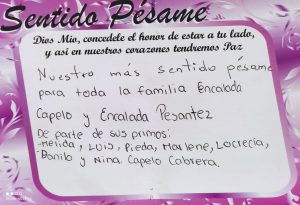 Sentido Pésame
Dios Mio, concedele el honor de estar a tu lado,
y asi en nuestros corazones tendremos Paz
Nuestro más sentido pésame
para toda la familia Encalada
Capelo y Encalada Pesantez
De parte de sus primos:
-Melida, LUIS, Pieda, Marlene, Lucrecia,
-Danilo y Nina. Capelo Cabrera.